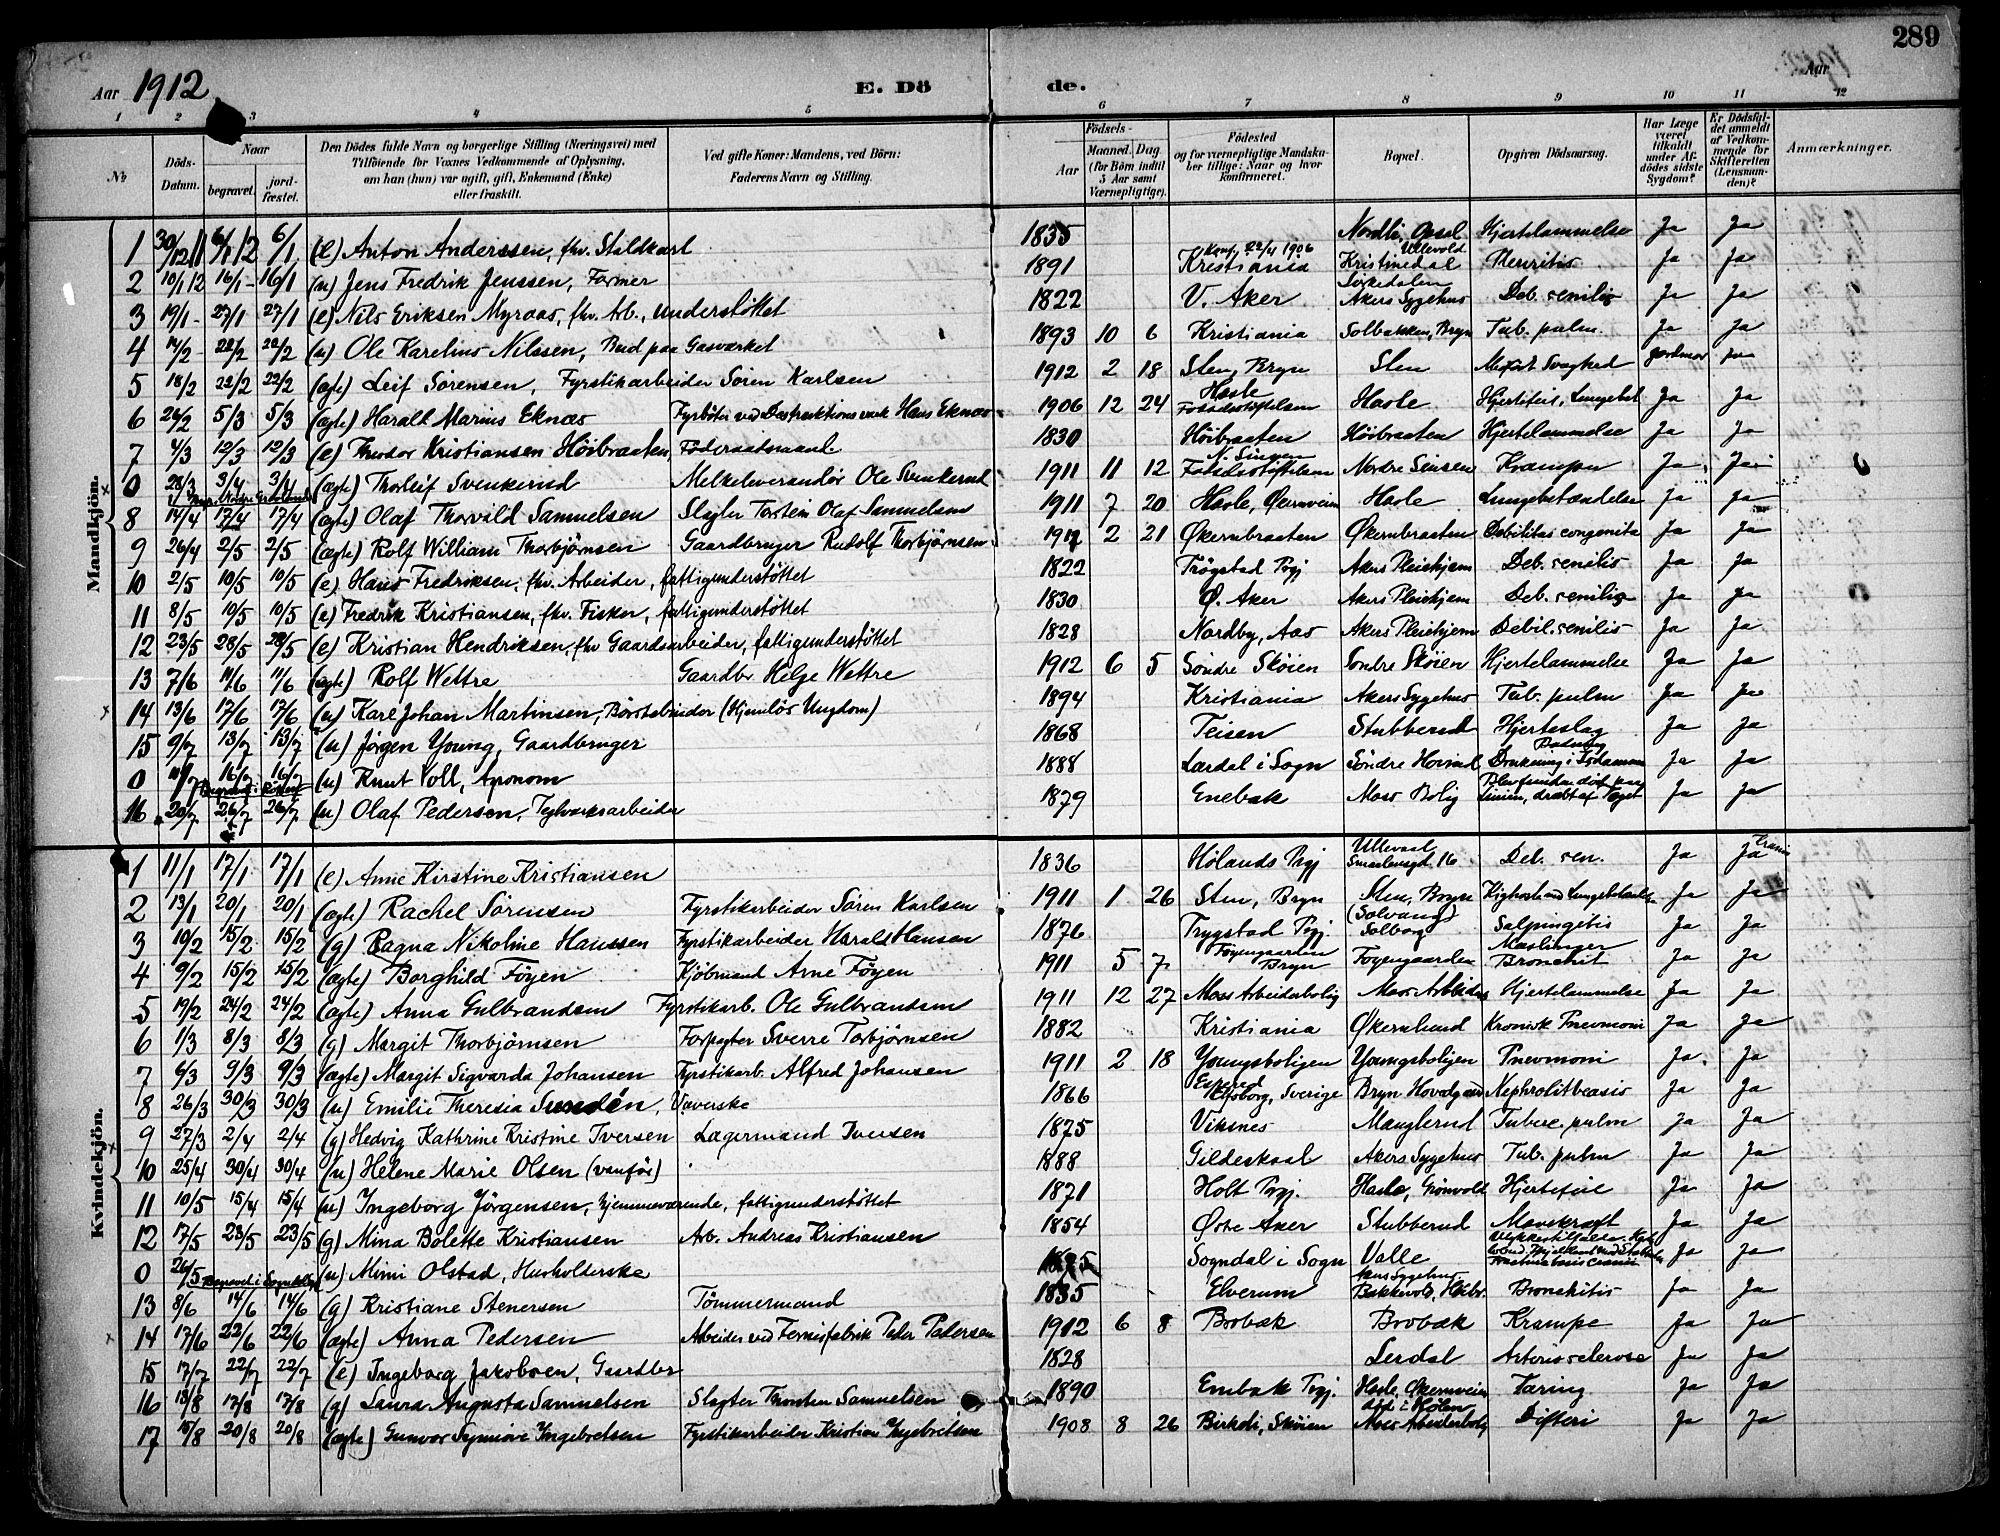 289
Aar 1912
E. Dö
de.
Aar
1 2 3 4 5 6 7 8 9 10 11 12
№
Döds-Datum.
Naar
begravet.
jordfæstet.
Den Dödes fulde Navn og borgerlige Stilling (Næringsvei) med Tilföiende for Voxnes Vedkommende af Oplysning, om han (hun) var ugift, gift, Enkemand (Enke) eller fraskilt.
Ved gifte Koner: Mandens, ved Börn: Faderens Navn og Stilling.
Födsels-
Aar
Maaned. Dag (for Börn indtil 5 Aar samt Værnepligtige).
Födested og for værnepligtige Mandskaber tillige: Naar og hvor konfirmeret.
Bopæl.
Opgiven Dödsaarsag.
Har Læge været tilkaldt under Afdödes sidste Sygdom?
Er Dödsfaldet anmeldt af Vedkommende for Skifteretten (Lensmanden)?
Anmærkninger.
Mandkjön.
1 30/12 11 6/1 12 6/1 (e) Anton Andersen, fhv. Staldkarl 1835 Nordli, Opsal Hjertelammelse Ja Ja
2 10/1 12 16/1 16/1 (u) Jens Fredrik Jenssen, Farmer 1891 Konf. 22/4 1906 Kristiania Kristinedal Ullevold Pleuritis Ja Ja
3 19/1 27/1 27/1 (e) Nils Eriksen Myraas, fhv. Arb., understøttet 1822 V. Aker Sørkedalen Akers Sygehus Deb. senilis Ja Ja
4 14/2 22/2 22/2 (u) Ole Karelius Nilssen, Bud paa Gasværket 1893 10 6 Kristiania Solbakken, Bryn Tub. pulm. Ja Ja
5 18/2 22/2 22/2 (ægte) Leif Sørensen, Fyrstikarbeider Søren Karlsen 1912 2 18 Sten, Bryn Sten Medført Svaghed Jordmor Ja
6 26/2 5/3 5/3 (ægte) Harald Marius Eknæs Fyrbøter ved Destruktionsverk Hans Eknæs 1906 12 24 Hasle Fødselsstiftelsen Hasle Hjertefeil, Lungebet Ja Ja
7 4/3 12/3 12/3 (e) Theodor Kristiansen Høibraaten, Føderaadsmand 1830 Høibraaten Høibraaten Hjertelammelse Ja Ja
0 28/3 3/4 3/4 (ægte) Thorleif Svenkerud Melkeleverandør Ole Svenkerud 1911 11 12 N. Sinsen Fødselsstiftelsen Nordre Sinsen Krampe Ja Ja
8 14/4 17/4 17/4 (ægte) Olaf Thorvild Samuelsen Slagter Torstein Olaf Samuelsen 1911 7 20 Hasle, Økernveien Hasle Lungebetændelse Ja Ja
9 26/4 2/5 2/5 (ægte) Rolf William Thorbjørnsen Gaardbruger Rudolf Thorbjørnsen 1912 2 21 Økernbraaten Økernbraaten Debilitas congenita Ja Ja
10 2/5 10/5 10/5 (e) Hans Fredriksen, fhv. Arbeider, fattigunderstøttet 1822 Trøgstad Pgj Akers Pleiehjem Deb. senilis Ja Ja
11 8/5 10/5 10/5 (e) Fredrik Kristiansen, fhv. Fisker, fattigunderstøttet 1830 Ø. Aker Akers Pleiehjem Deb. senilis Ja Ja
12 23/5 28/5 28/5 (e) Kristian Hendriksen, fhv Gaardsarbeider, fattigunderstøttet 1828 Nordby, Aas Akers Pleiehjem Debil. senilis Ja Ja
13 7/6 11/6 11/6 (ægte) Rolf Wettre Gaardbr Helge Wettre 1912 6 5 Søndre Skøien Søndre Skøien Hjertelammelse Ja Ja
14 13/6 17/6 17/6 (u) Karl Johan Martinsen, Børstebinder (Hjemløs Ungdom) 1894 Kristiania Akers Sygehus Tub. pulm Ja Ja
15 9/7 13/7 13/7 (u) Jørgen Young, Gaardbruger 1868 Teisen Stubberud Hjerteslag Ja Ja
0 11/7 16/7 16/7 (u) Knut Voll, Agronom 1888 Lærdal i Sogn Søndre Hovind Drukning i Isdammen Badning Ja Ja
16 20/7 26/7 26/7 (u) Olaf Pedersen, Teglværksarbeider 1879 Enebak Moss Bolig Blev funden død paa Linien, dræbt af Toget Ja Ja
Kvindekjön.
1 11/1 17/1 17/1 (e) Anne Kirstine Kristiansen 1836 Hølands Pgj Ullevaal 16 Deb. sen. Ja Ja
2 13/1 20/1 20/1 (ægte) Rachel Sørensen Fyrstikarbeider Søren Karlsen 1911 1 26 Sten, Bryn Sten, Bryn Kighoste Lungebetændelse Ja Ja
3 10/2 15/2 15/2 (g) Ragna Nikoline Hanssen Fyrstikarbeider Harald Hansen 1876 Trygstad Pgj. (Solvang) Solborg Salpingitis Ja Ja
4 9/2 15/2 15/2 (ægte) Borghild Föyen Kjøbmand Arne Föyen 1911 5 7 Föyengaarden Bryn Foyengaarden Mæslinger Bronchit Ja Ja
5 19/2 24/2 24/2 (ægte) Anna Gulbrandsen Fyrstikarb. Ole Gulbrandsen 1911 12 27 Moss Arbeiderbolig Moss Arbeider Hjertelammelse Ja Ja
6 1/3 8/3 8/3 (g) Margit Thorbjørnsen Forpagter Sverre Torbjørnsen 1882 Kristiania Økernlund Kronisk Pnevmoni Ja Ja
7 6/3 9/3 9/3 (ægte) Margit Sigvarda Johansen Fyrstikarb. Alfred Johansen 1911 2 18 Youngsboligen Youngsboligen Pnevmoni Ja Ja
8 26/3 30/3 30/3 (u) Emilie Theresia Sundén, Væverske 1866 Elfsborg, Sverige Bryn Hovedgaard Nephrolithiasis Ja Ja
9 27/3 2/4 2/4 (g) Hedvig Kathrine Kristine Iversen Lagermand Iversen 1875 Viksnes Manglerud Tuberc. pulm Ja Ja
10 25/4 30/4 30/4 (u) Helene Marie Olsen (vanfør) 1888 Gildeskaal Akers Sygehus Tub. pulm Ja Ja
11 10/5 15/4 15/4 (u) Ingeborg Jørgensen, hjemmeværende, fattigunderstøttet 1871 Holt Pgj. Hasle, Grønvold Hjertefeil Ja Ja
12 17/5 23/5 23/5 (g) Mina Bolette Kristiansen Arb. Andreas Kristiansen 1854 Østre Aker Stubberud Mavekræft Ja Ja
0 26/5 (u) Mimi Olstad, Husholderske Sogndal i Sogn Valle Ulykkestilfælde Ja Ja
13 8/6 14/6 14/6 (g) Kristiane Stenersen Tømmermand 1835 Elverum Akers Sygehus Bronchitis Ja Ja
14 17/6 22/6 22/6 (ægte) Anna Pedersen Arbeider ved Fernisfabrik Peter Pedersen 1912 6 8 Brobæk Brobæk Krampe Ja Ja
15 17/7 22/7 22/7 (e) Ingeborg Jakobsen, Gaardbr 1828 Lerdal Arteriosclerose Ja Ja
16 13/8 17/8 17/8 (g) Laura Augusta Samuelsen Slagter Thorsten Samuelsen 1890 Enebak Pgj. Hasle, Økernveien død i Hølen Tæring Ja Ja
17 15/8 20/8 20/8 (ægte) Gunvor Synnøve Ingebretsen Fyrstikarbeider Kristian Ingebretsen 1908 8 26 Birkeli, Skøien Moss Arbeiderbolig Difteri Ja Ja